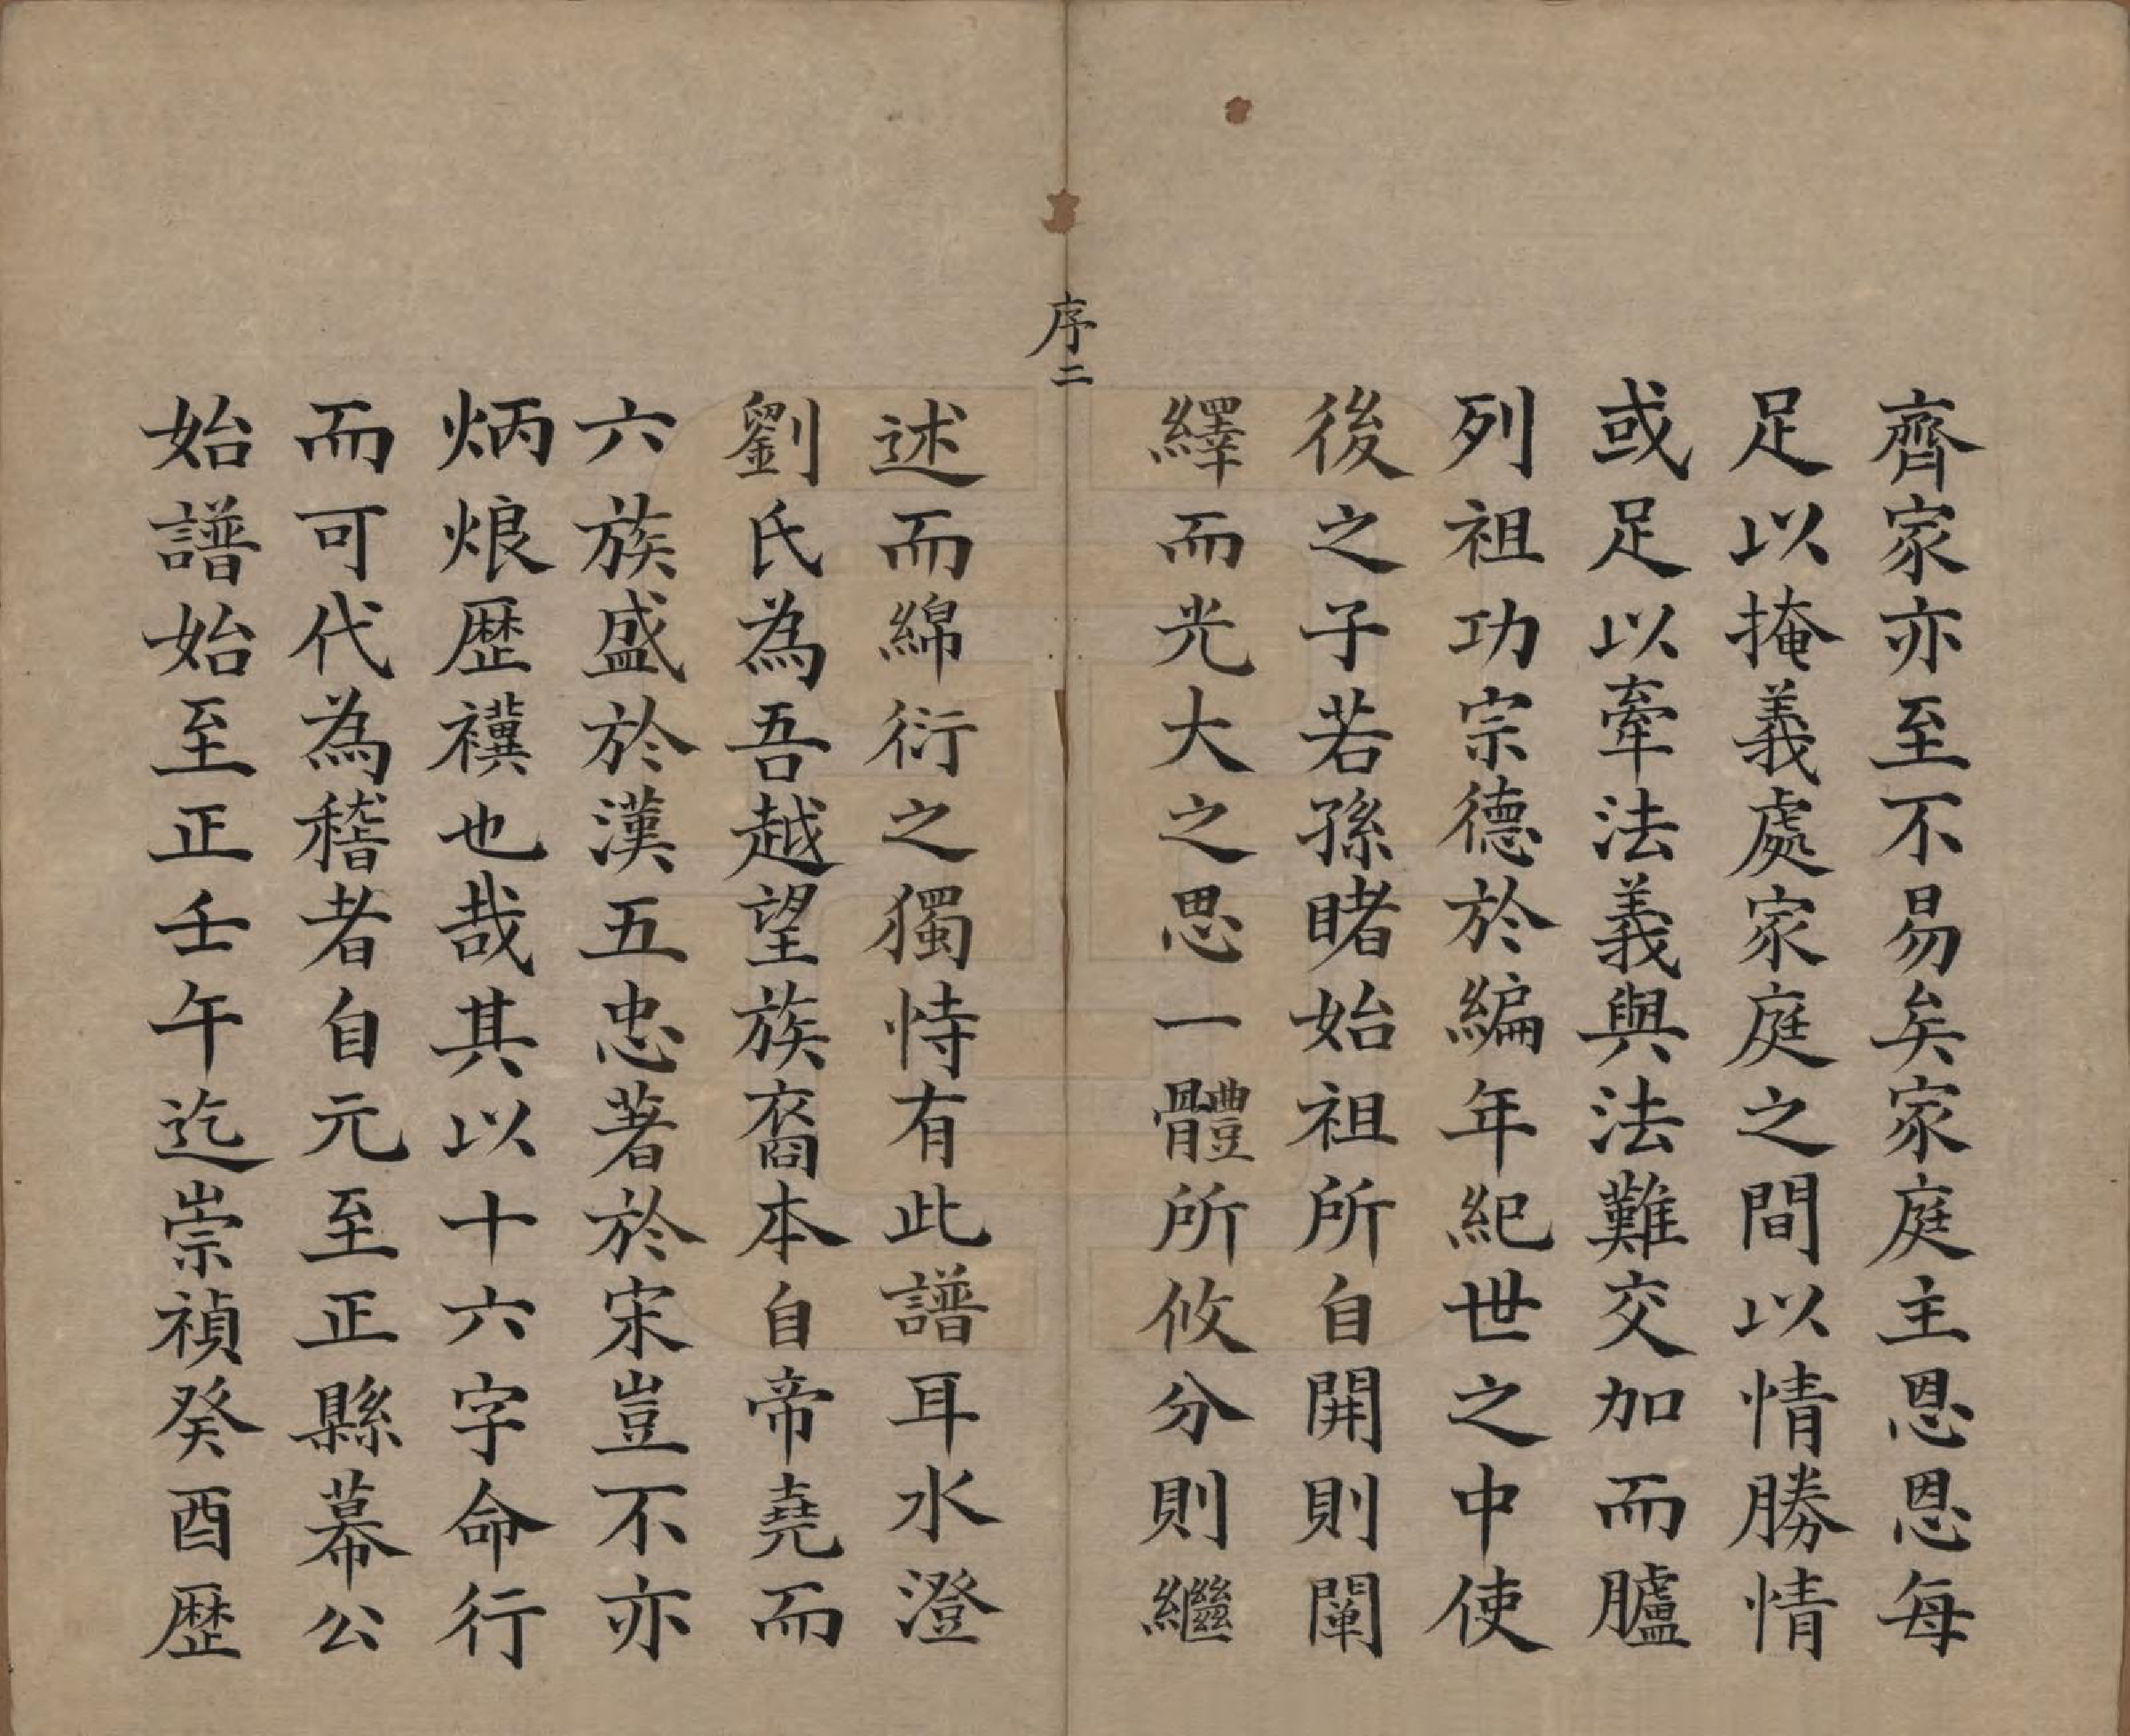 齊家亦至不易矣家庭主恩恩每
足以掩義處家庭之間以情勝情
或足以牽法義與法難交加而臚
列祖功宗德於編年紀世之中使
後之子若孫睹始祖所自開則闡
繹而光大之思一體所攸分則繼
序二
述而綿衍之獨恃有此譜耳水澄
劉氏為吾越望族裔本自帝堯而
六族盛於漢五忠著於宋豈不亦
炳烺歷襈也哉其以十六字命行
而可代為稽者自元至正縣幕公
始譜始至正壬午迄崇禎癸酉歷